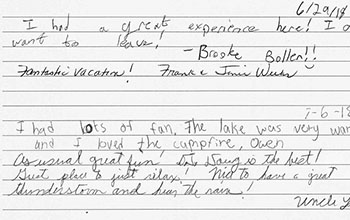 6/29/18
I had a great experience here! I
want to leave!
- Brooke Bollen!!
Fantastic vacation! Frank & Jimie
7-6-18
I had lots of fun. The lake was very war
and I loved the campfire, Owen
As usual great fun Doug is the best!
Great place to just relax! Nice to have a great
thunderstorm and hear the rain!
Uncle